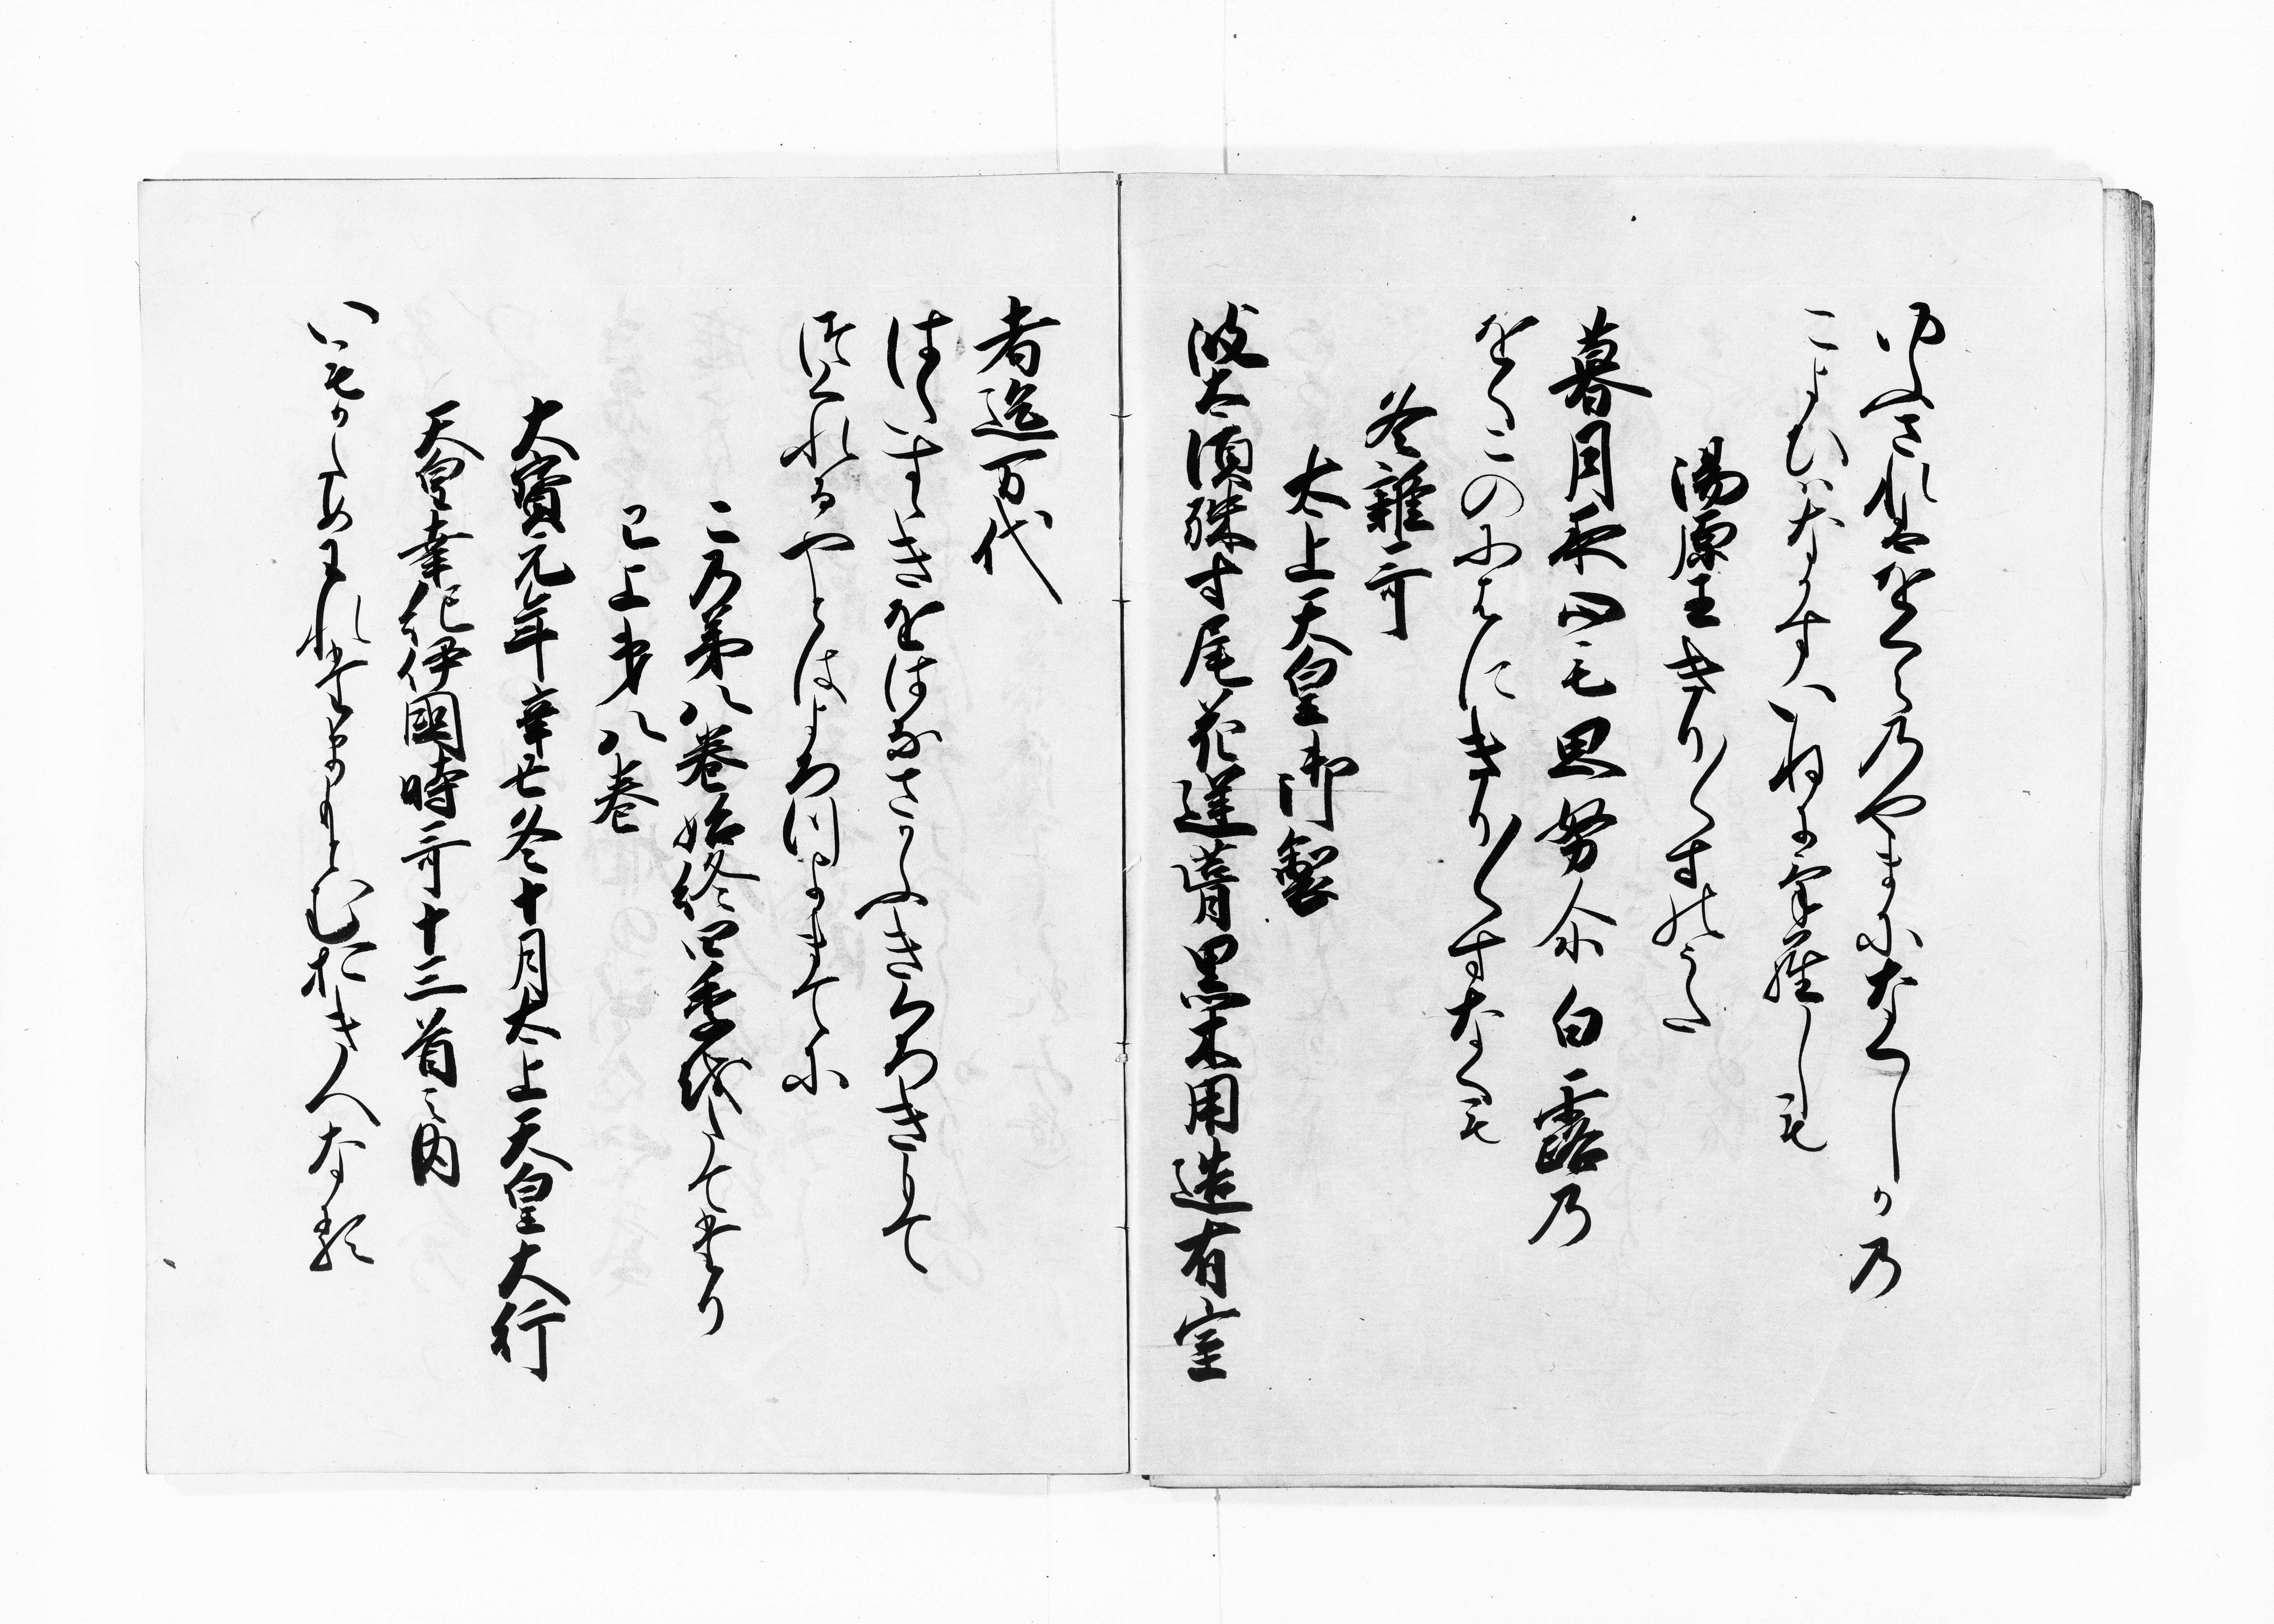 ゆふされはをくらのやまになくしかの
こよひはなかすいねにけらしも
湯原王きり〳〵すのうた
暮月夜心毛思努尓白露乃
をくこのにはにきり〳〵すなくも
冬雑哥
太上天皇御製
波太須殊寸尾花逆葺黒木用造有室
者迄万代
はたすゝきをはなさかふきくろきもて
つくれるやとはよろつよまてに
この第八巻始終四季をたてたり
已上第八巻
大寶元年辛丑冬十月太上天皇大行
天皇幸紀伊國時哥十三首之内
いもかためわれたまもとむおきへなる